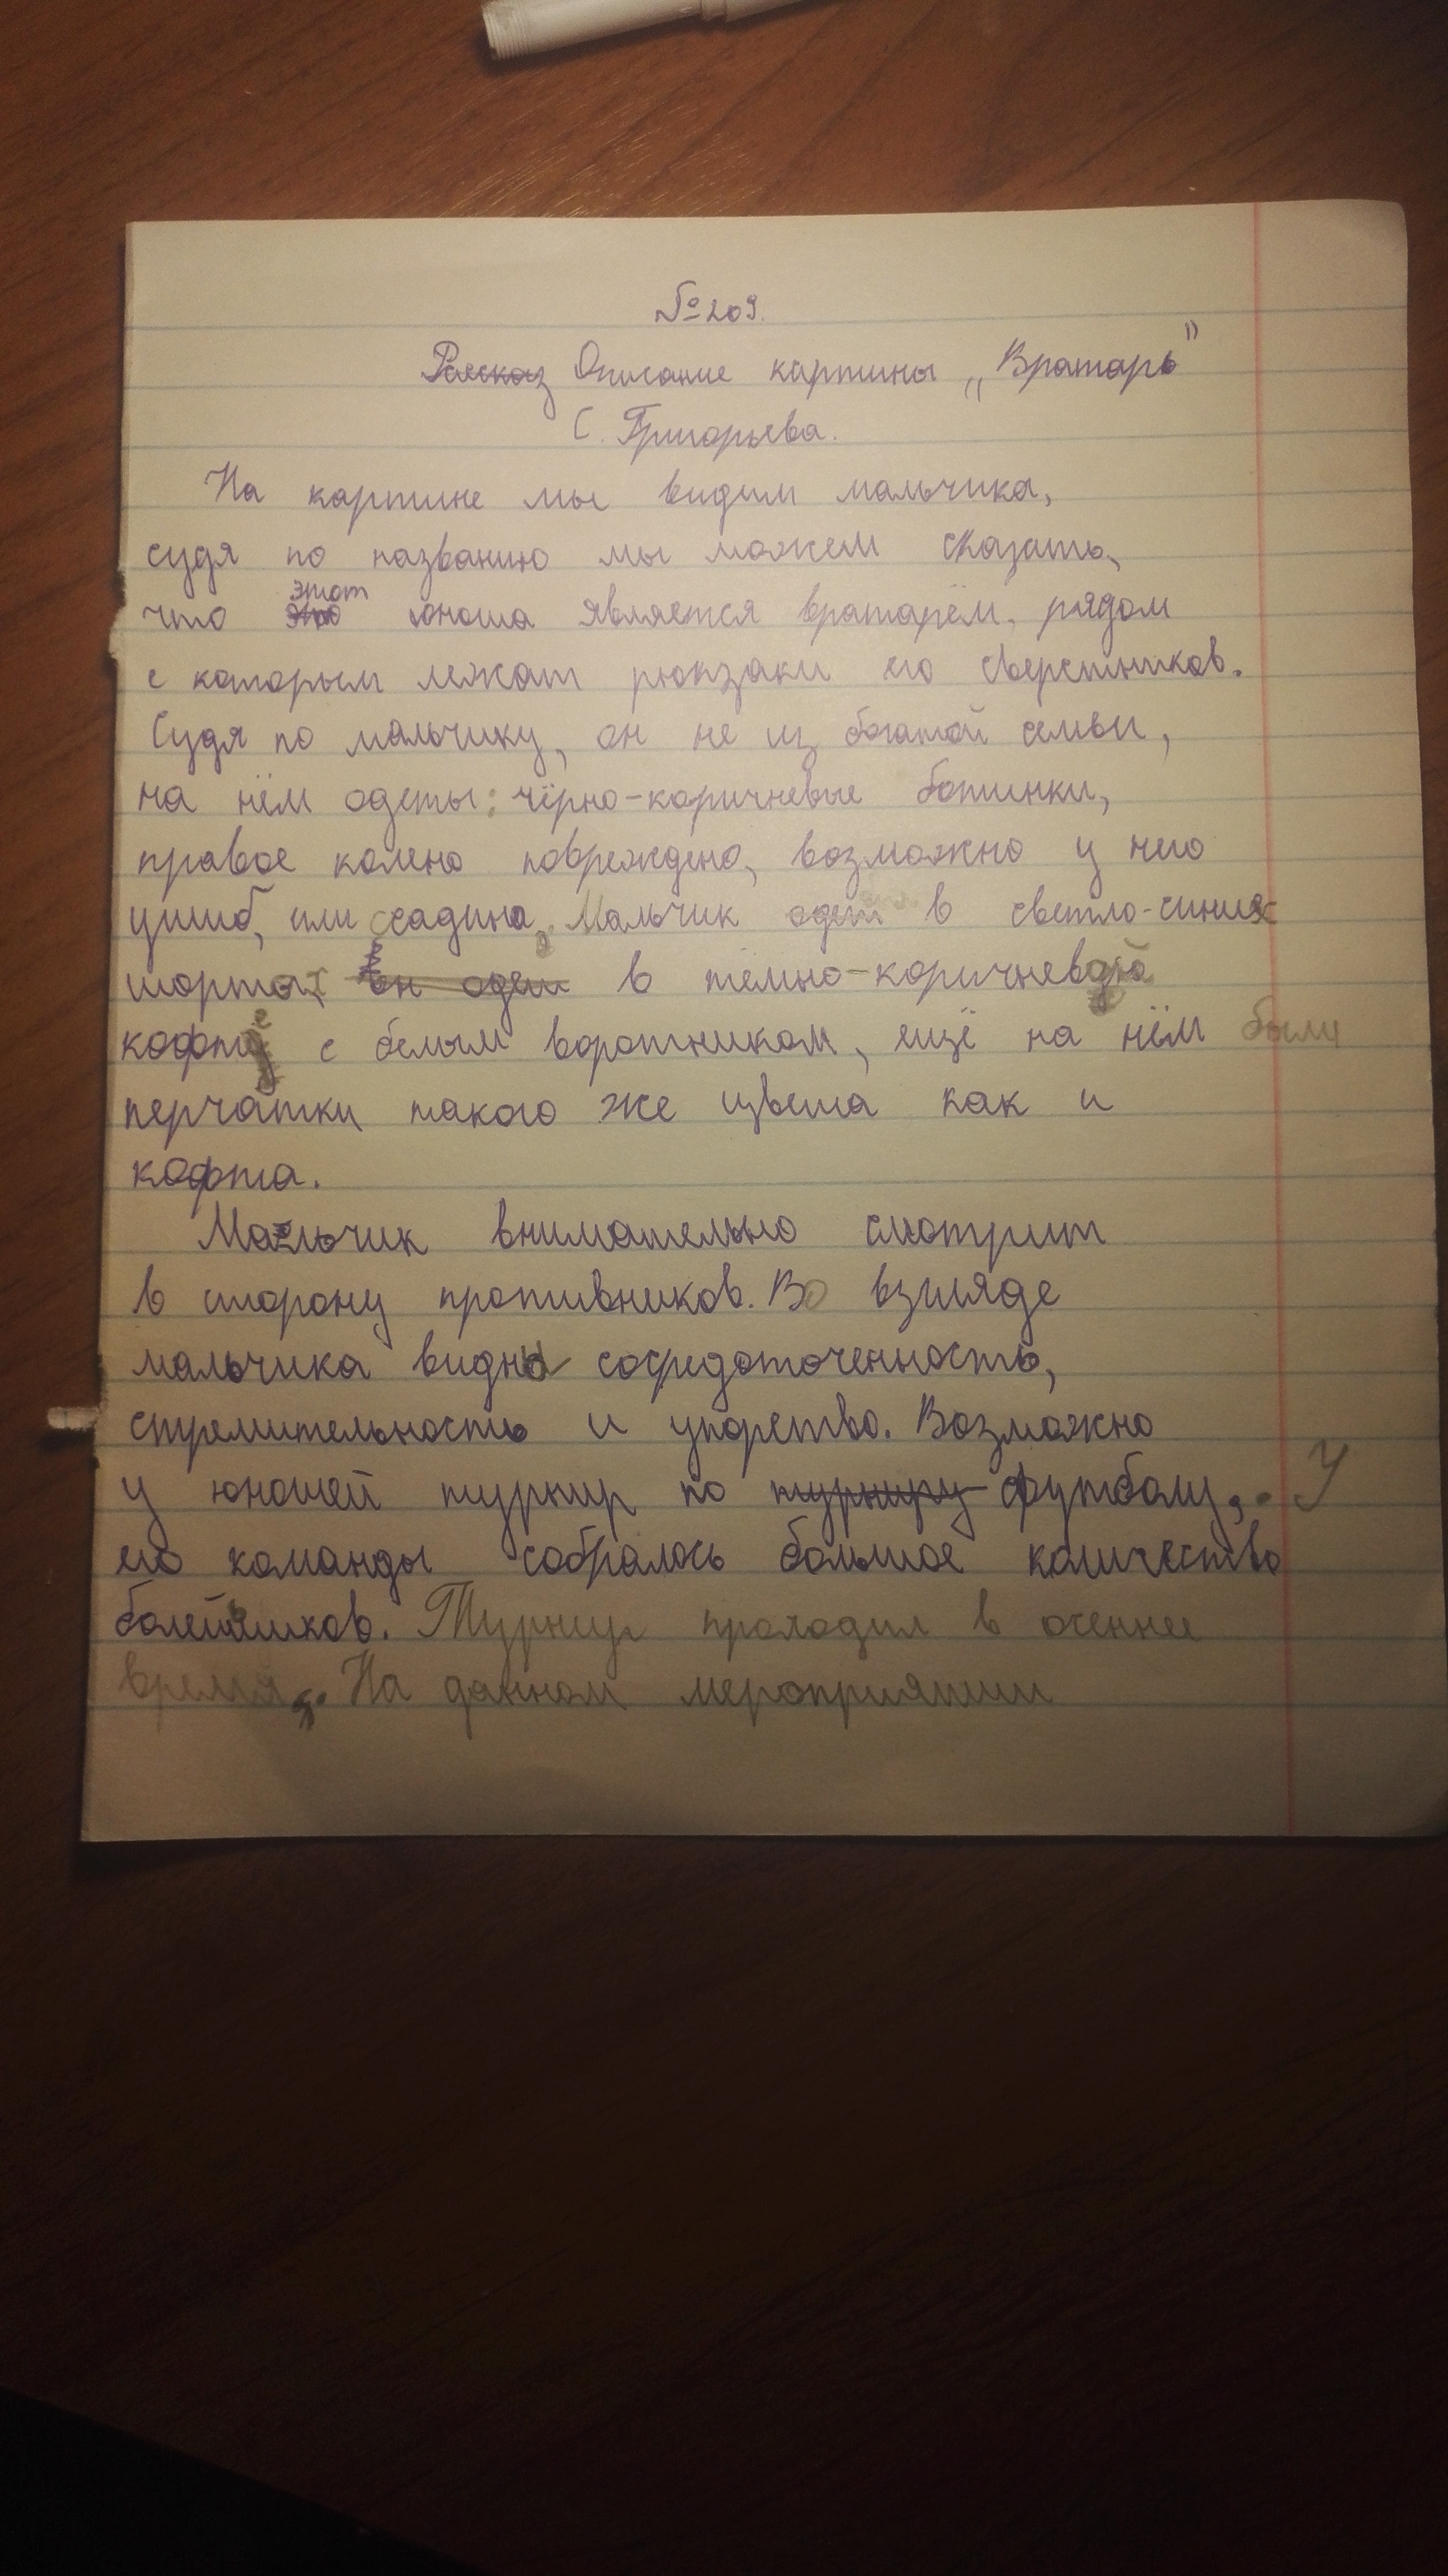 №209.
Рассказ Описание картины „Вратарь"
С. Григорьева.
На картине мы видим мальчика,
судя по названию мы можем сказать,
что это этот юноша является вратарём, рядом
с которым лежат рюкзаки его сверстников.
Судя по мальчику, он не из богатой семьи,
на нём одеты: чёрно-коричневые ботинки,
правое колено повреждено, возможно у него
ушиб, или ссадина. Мальчик одет в светло-синих
шортах он одет в тёмно-коричневой
кофте с белым воротником, ещё на нём были
перчатки такого же цвета как и
кофта.
Мальчик внимательно смотрит
в сторону противников. Во взгляде
мальчика видны сосредоточенность,
стремительность и упорство. Возможно
у юношей турнир по турниру футболу. У
его команды собралось большое количество
болельщиков. Турнир проходил в осеннее
время. На данном мероприятии